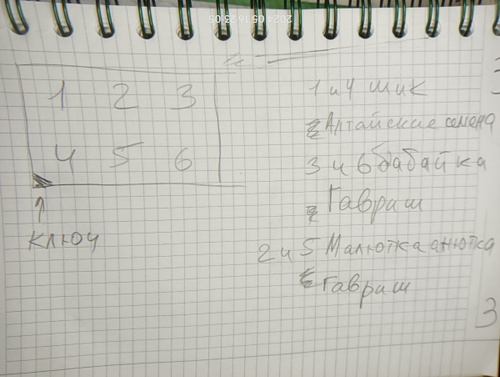 1 2 3
4 5 6
ключ
1 и 4 шик
Алтайские семена
3 и 6 бабайка
Гавриш
2 и 5 Малютка анютка
Гавриш
3